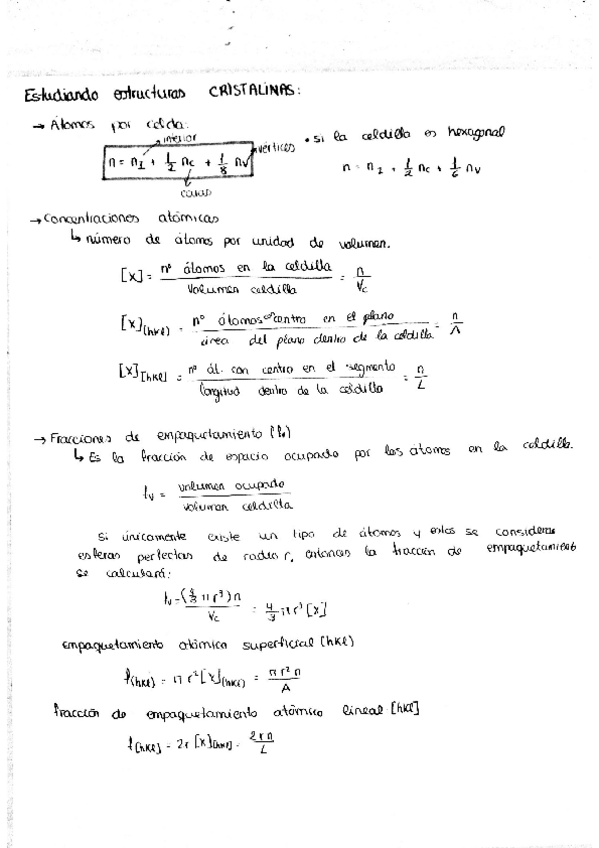 Estudiando estructuras CRISTALINAS:
→ Átomos por celda:
interior
n = n_I + 1/2 n_c + 1/8 n_v
vértices
caras
• si la celdilla es hexagonal
n = n_I + 1/2 n_c + 1/6 n_v
→ Concentraciones atómicas
↳ número de átomos por unidad de volumen.
[x] = nº átomos en la celdilla / volumen celdilla = n / V_c
[x](hkl) = nº átomos centro en el plano / área del plano dentro de la celdilla = n / A
[x][hkl] = nº át. con centro en el segmento / longitud dentro de la celdilla = n / L
→ Fracciones de empaquetamiento (fv)
↳ Es la fracción de espacio ocupado por los átomos en la celdilla.
fv = volumen ocupado / volumen celdilla
Si únicamente existe un tipo de átomos y estos se consideran
esferas perfectas de radio r, entonces la fracción de empaquetamient
se calculará:
fv = (4/3 π r³) n / V_c = 4/3 π r³ [x]
empaquetamiento atómico superficial (hkl)
f(hkl) = π r² [x](hkl) = π r² n / A
fracción de empaquetamiento atómico lineal [hkl]
f[hkl] = 2r [x][hkl] = 2 r n / L